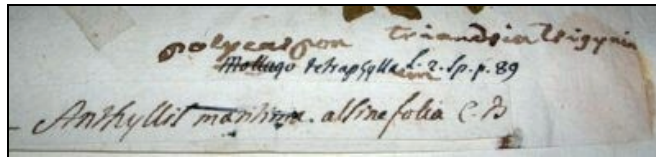 polycarpon triandria trigynia
Mollugo tetraphylla L. 2. Sp. p. 89
Anthyllis maritima. alsinefolia C. B